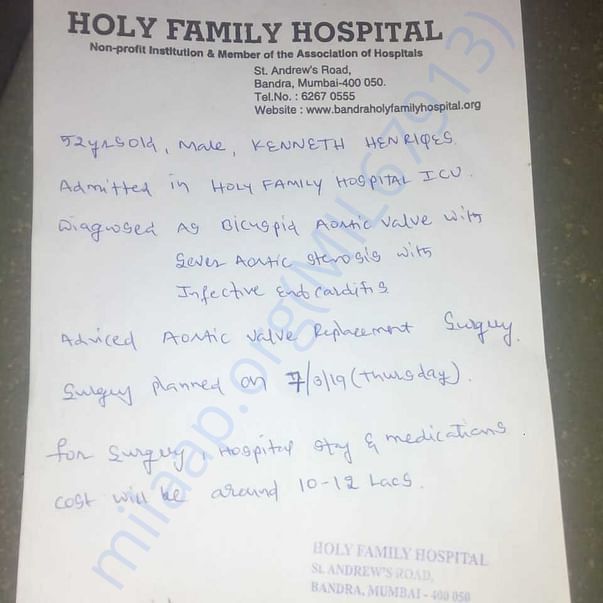 HOLY FAMILY HOSPITAL
Non-profit Institution & Member of the Association of Hospitals
St. Andrew's Road,
Bandra, Mumbai-400 050.
Tel.No. : 6267 0555
Website : www.bandraholyfamilyhospital.org
52yrs old, Male, KENNETH HENRIQES.
Admitted in HOLY FAMILY HOSPITAL ICU.
Diagnosed as Bicuspid Aortic valve with
Sever Aortic stenosis with
Infective Endcarditis
Adviced Aortic valve Replacement Surgury.
Surguy planned on 7/3/19 (Thursday).
for Surguy, Hospital stay & medications
cost will be around 10-12 Lacs.
HOLY FAMILY HOSPITAL
St. ANDREW'S ROAD,
BANDRA, MUMBAI - 400 050
milaap.org(MIL67913)